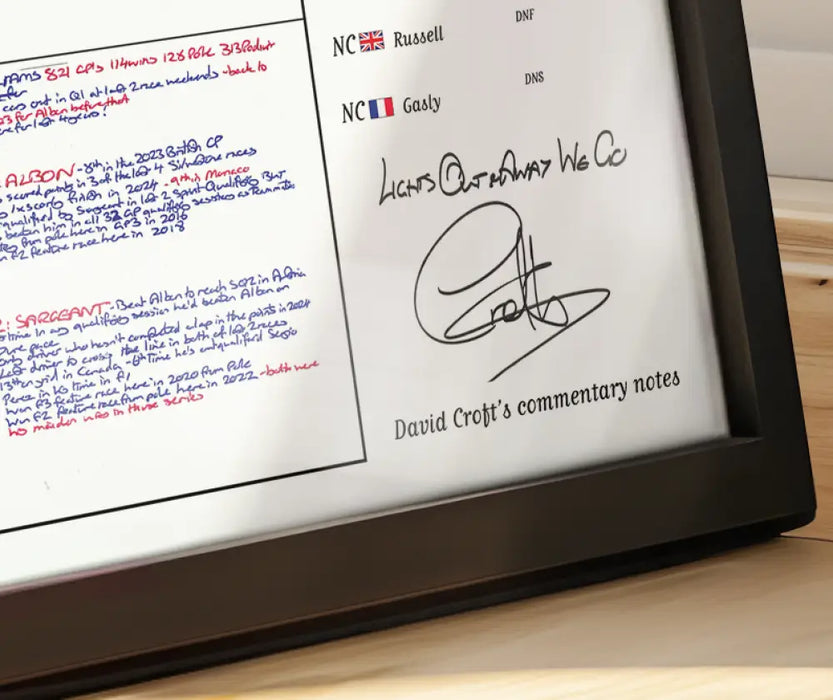 821 GPs 114 wins 128 Pole 313 Podium
cars out in Q1 at last 2 race weekends - back to
23 for Albon before that
ALBON - 8th in the 2023 British GP
scored points in 3 of the last 4 Silverstone races
in 2024 - 9th in Monaco
qualified by Sargeant in last 2 Sprint Qualifyings But
beaten him in all 32 GP qualifying sessions as teammate
from pole here in GP3 in 2016
F2 feature race here in 2018
: SARGEANT - Beat Albon to reach SQ2 in Austria
time in any qualifying session he'd beaten Albon on
pure pace
only driver who hasn't completed a lap in the points in 2024
Last driver to cross the line in both of last 2 races
13th on grid in Canada - 6th Time he's outqualified Sergio
Perez in his time in F1
Won F3 feature race here in 2020 from Pole
Won F2 feature race from pole here in 2022 - both were
his maiden wins in those series
DNF
NC Russell
DNS
NC Gasly
LIGHTS OUT AND AWAY WE GO
Crofty
David Croft's commentary notes